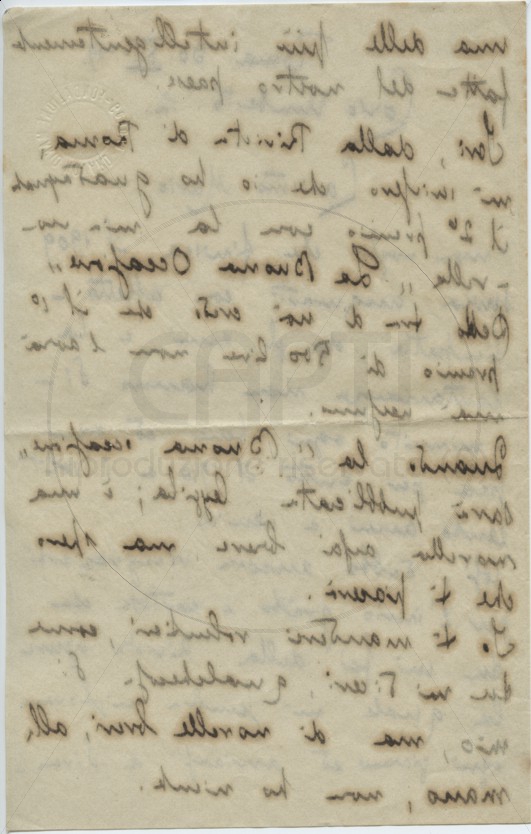 ma delle più intelligentemente
fatte del nostro paese.
Ieri, dalla Rivista di Roma,
che io ho guadagnato
il 2º premio con la mia no-
-vella „ La Buona Occasione „
Detto tra di noi credo che il 1º
premio di 500 lire non l'avrà
mai nessuno.
Quando la "Buona occasione„
sarà pubblicata leggila; è una
novella assai breve ma spero
che ti piacerà.
Io ti manderei volentieri, come
tu mi dicevi, qualchecosa
mio, ma di novelle brevi, alla
mano, non ho niente.
CAPTI
riproduzione riservata